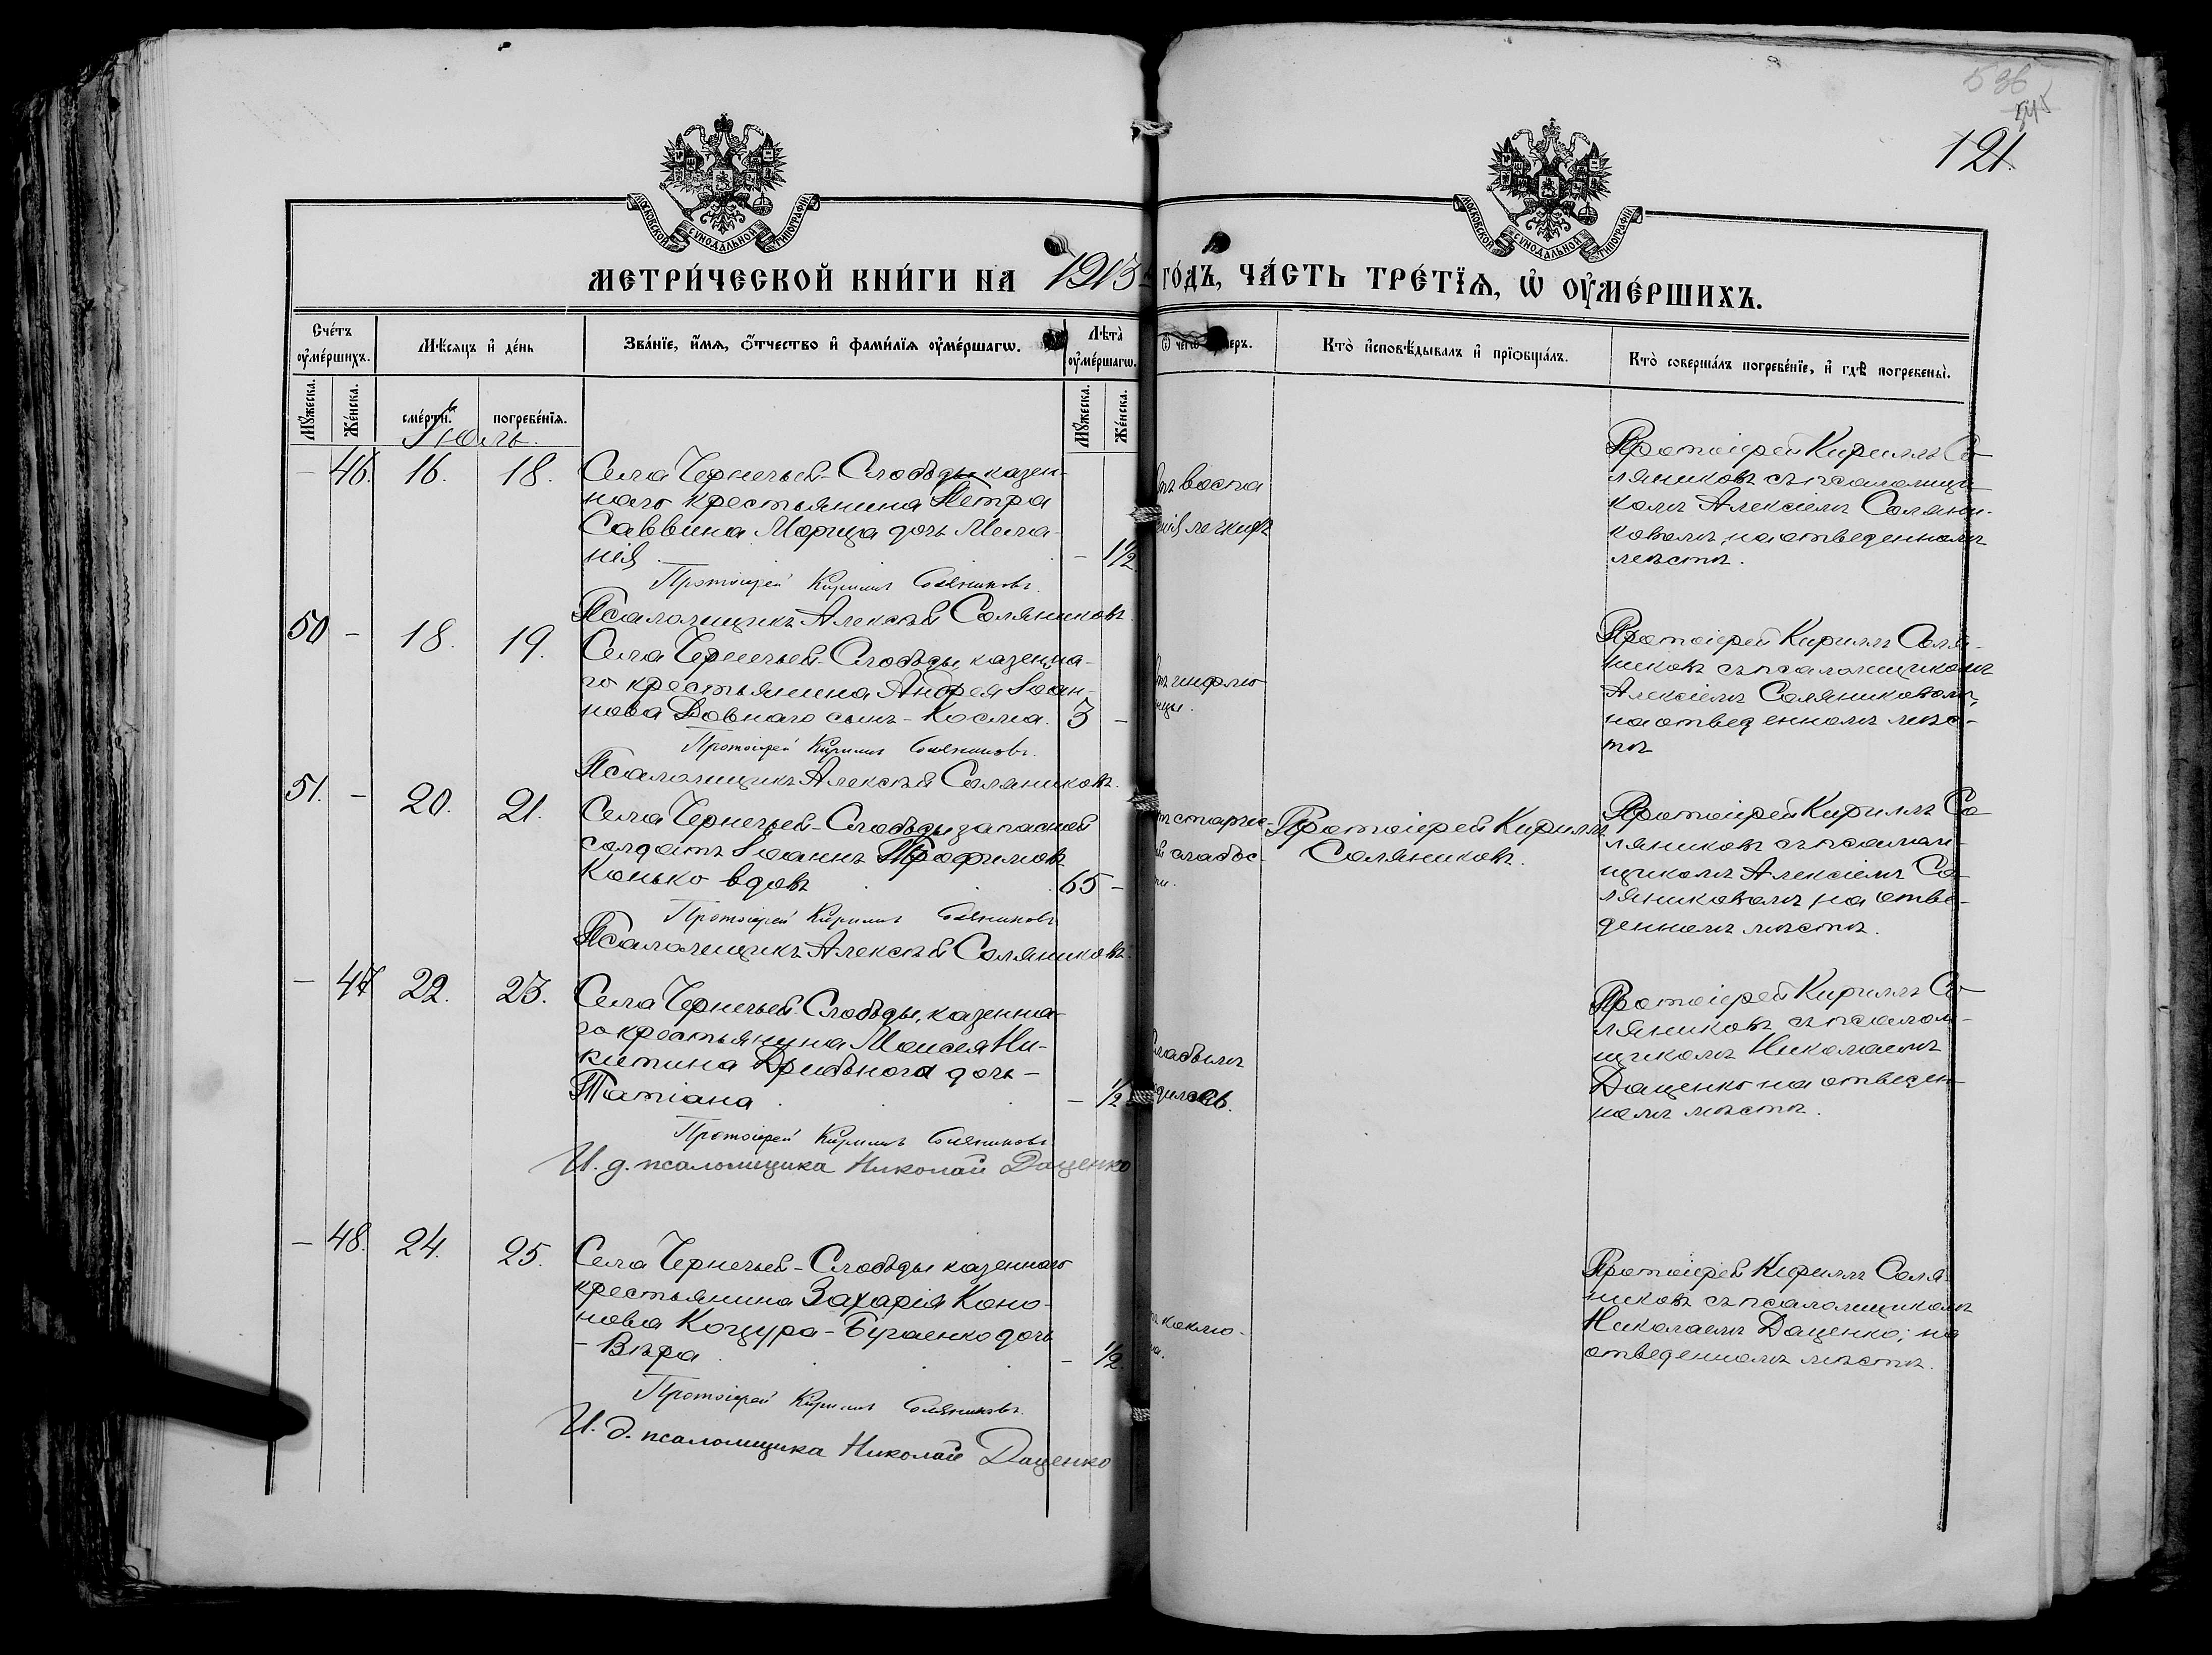 536
121.
МОСКОВСКОЙ СѴНОДАЛЬНОЙ ТИПОГРАФІИ
МОСКОВСКОЙ СѴНОДАЛЬНОЙ ТИПОГРАФІИ
МЕТРИ́ЧЕСКОЙ КНИ́ГИ НА 1913 ГО́ДЪ, ЧА́СТЬ ТРЕ́ТЇѦ, Ѡ҆ ОУ҆МЕ́РШИХЪ.
Сче́тъ оу҆ме́ршихъ.
Мѣ́сѧцъ и҆ де́нь
Зва́нїе, и҆́мѧ, ѻ҆́тчество и҆ фами́лїѧ оу҆ме́ршагѡ.
Лѣ́та̀ оу҆ме́ршагѡ.
Кто̀ и҆сповѣ́дывалъ и҆ прїѡбща́лъ.
Кто̀ соверша́лъ погребе́нїе, и҆ гдѣ̀ погребены̀.
Мꙋ́жеска. Же́нска.
сме́рти. погребе́нїѧ.
Мꙋ́жеска. Же́нска.
Іюль.
— 46. 16. 18. Села Чернечьей-Слободы казен-
наго крестьянина Петра
Саввина Морица дочь Мела-
нія — 1½
Протоіерей Кириллъ Соляниковъ.
Псаломщикъ Алексѣй Соляниковъ.
воспа
нія легкихъ
Протоіерей Кириллъ Со-
ляниковъ съ псаломщи-
комъ Алексіемъ Соляни-
ковымъ, на отведенномъ
мѣстѣ.
50 — 18. 19. Села Чернечьей-Слободы, казенна-
го крестьянина Андрея Іоан-
нова Довнаго сынъ - Косма. 3 —
Протоіерей Кириллъ Соляниковъ.
Псаломщикъ Алексѣй Соляниковъ.
инфлю
нцы.
Протоіерей Кириллъ Соля-
никовъ съ псаломщикомъ
Алексіемъ Соляниковымъ,
на отведенномъ мѣс-
тѣ
51. — 20. 21. Села Чернечьей-Слободы запасной
солдатъ Іоаннъ Трофимовъ
Конько вдовъ 65 —
Протоіерей Кириллъ Соляниковъ
Псаломщикъ Алексѣй Соляниковъ.
старче-
й слабос-
ти.
Протоіерей Кириллъ
Соляниковъ.
Протоіерей Кириллъ Со-
ляниковъ съ псалом-
щикомъ Алексіемъ Со-
ляниковымъ на отве-
денномъ мѣстѣ.
— 47 22. 23. Села Чернечьей Слободы, казенна-
го крестьянина Моисея Ни-
китина Дрибного дочь -
Татіана — ½
Протоіерей Кириллъ Соляниковъ
И. д. псаломщика Николай Даценко
слабымъ
одилась.
Протоіерей Кириллъ Со-
ляниковъ съ псалом-
щикомъ Николаемъ
Даценко на отведен-
номъ мѣстѣ.
— 48. 24. 25. Села Чернечьей-Слободы казеннаго
крестьянина Захарія Коно-
нова Коцура-Бугаенко дочь
- Вѣра — ½.
Протоіерей Кириллъ Соляниковъ.
И. д. псаломщика Николай Даценко
коклю-
ша.
Протоіерей Кириллъ Соля-
никовъ съ псаломщикомъ
Николаемъ Даценко; на
отведенномъ мѣстѣ.